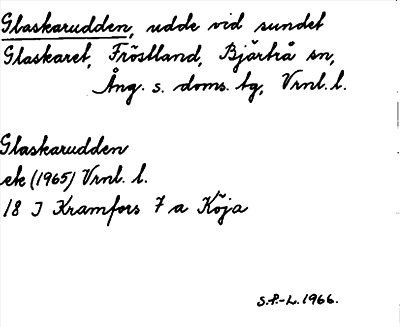 Glaskarudden, udde vid sundet
Glaskaret, Fröstland, Bjärtrå sn,
Ång. s. doms. tg, Vrnl. l.
Glaskarudden
ek (1965) Vrnl. l.
18 J Kramfors 7 a Köja
S.P.-L. 1966.